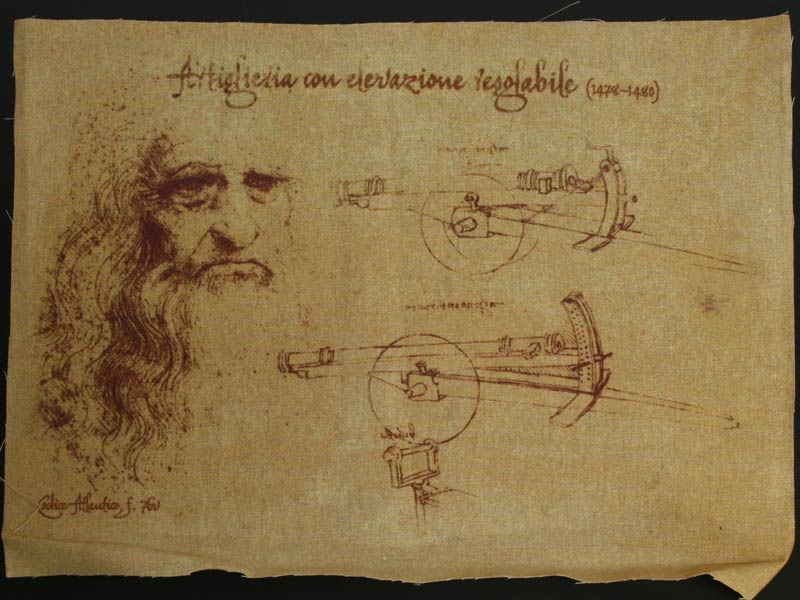 Artiglieria con elevazione regolabile (1478-1480)
Codice Atlantico, f. 76v